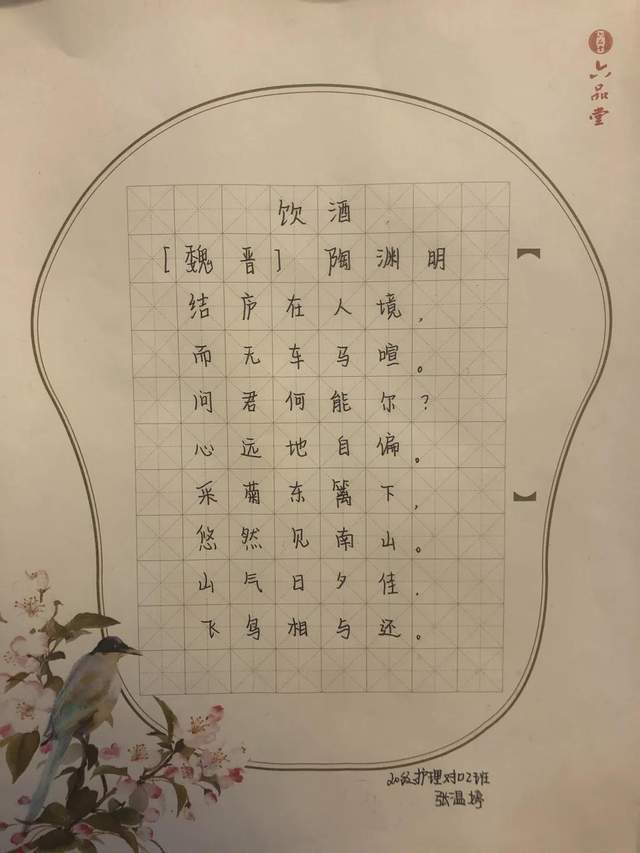 六品堂
饮酒
[魏晋] 陶渊明
结庐在人境，
而无车马喧。
问君何能尔？
心远地自偏。
采菊东篱下，
悠然见南山。
山气日夕佳．
飞鸟相与还。
20级护理对口2班
张温婷